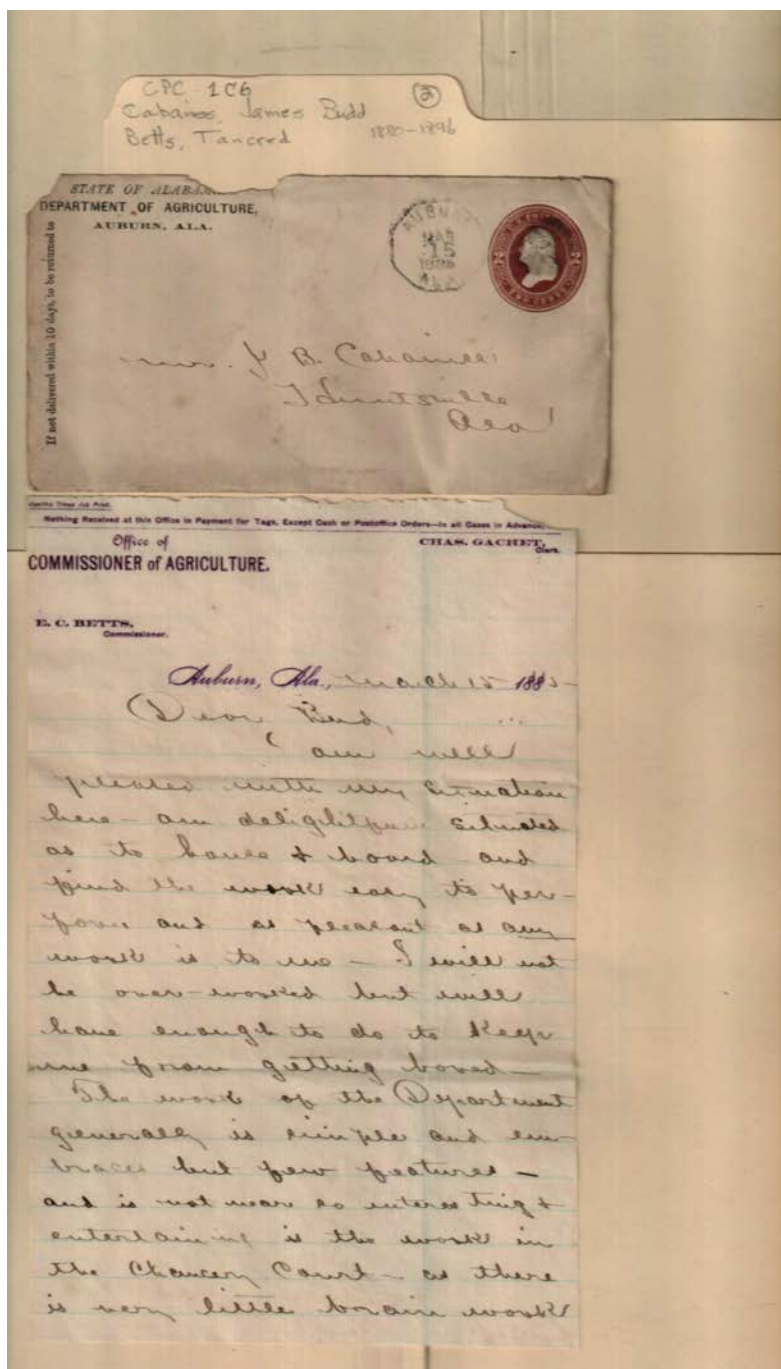 CPC 1C6 (2)
Cabaniss, James Budd
Betts, Tancred 1880-1896
STATE OF ALABA
DEPARTMENT OF AGRICULTURE,
AUBURN, ALA.
If not delivered within 10 days, to be returned to
AUBURN
MAR
15
ALA
TWO CENTS
Mr. J. B. Cabaniss
Huntsville
Ala
Times Job Print.
Nothing Received at this Office in Payment for Tags, Except Cash or Postoffice Orders—in all Cases in Advance.
Office of
COMMISSIONER of AGRICULTURE.
CHAS. GACHET,
Clerk.
E. C. BETTS,
Commissioner.
Auburn, Ala., March 15 188
Dear Bud,
I am well
pleased with my situation
here - am delightfully situated
as to house & board and
find the work easy to per-
form and as pleasant as any
work is to me - I will not
be over-worked but will
have enough to do to keep
me from getting bored -
The work of the Department
generally is simple and em-
braces but few features -
and is not near so interesting &
entertaining is the work in
the Chancery Court - as there
is very little brain work